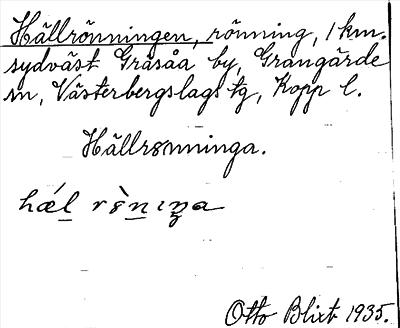 Hällrönningen, rönning, 1 km.
sydväst Gräsåa by, Grangärde
sn, Västerbergslags tg, Kopp l.
Hällrønninga.
Otto Blixt 1935.